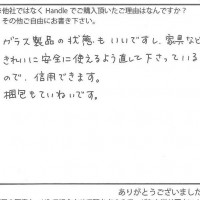 ※他社ではなく Handle でご購入頂いたご理由はなんですか？
その他ご自由にお書き下さい。
ガラス製品の状態もいいですし、家具など
きれいに安全に使えるよう直して下さっている
ので、信用できます。
梱包もていねいです。
ありがとうございました